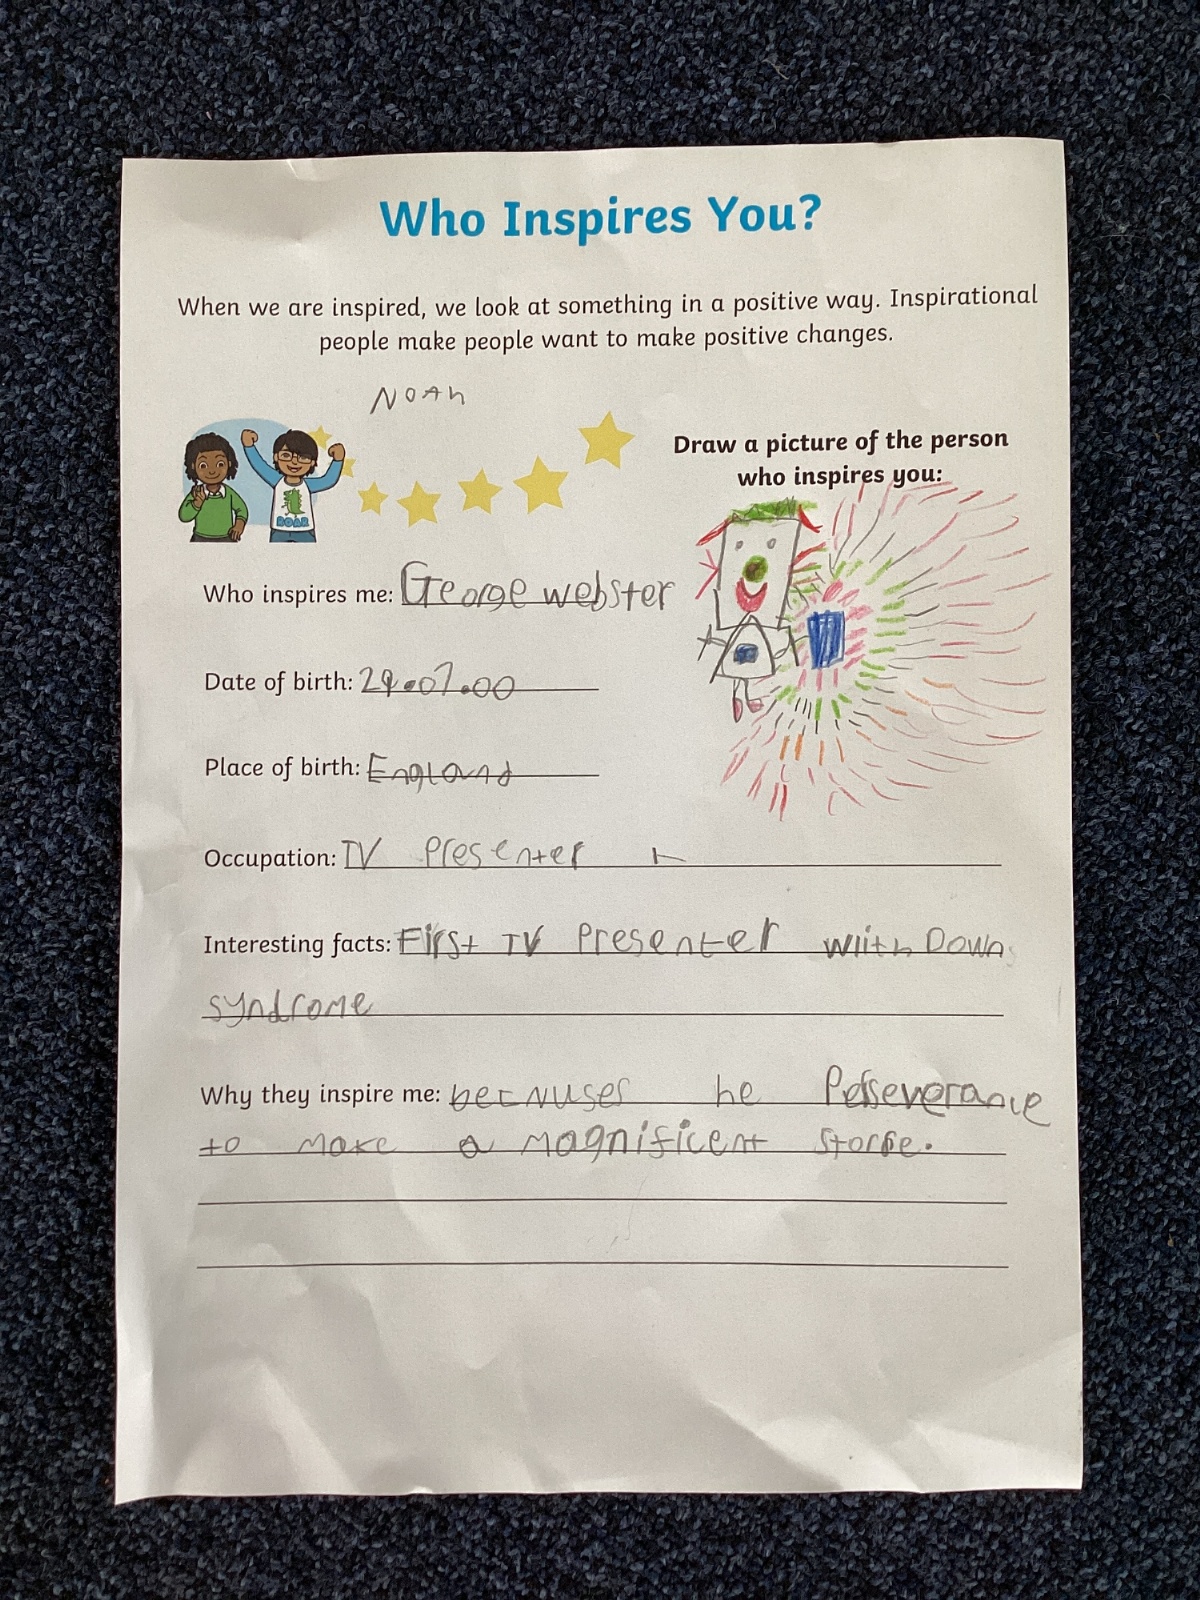 Who Inspires You?
When we are inspired, we look at something in a positive way. Inspirational
people make people want to make positive changes.
NOAh
ROAR
Draw a picture of the person
who inspires you:
Who inspires me: George webster
Date of birth: 29.07.00
Place of birth: England
Occupation: TV Presenter
Interesting facts: First TV Presenter wiith Down
syndrome
Why they inspire me: becauses he Perseverance
to make a magnificent